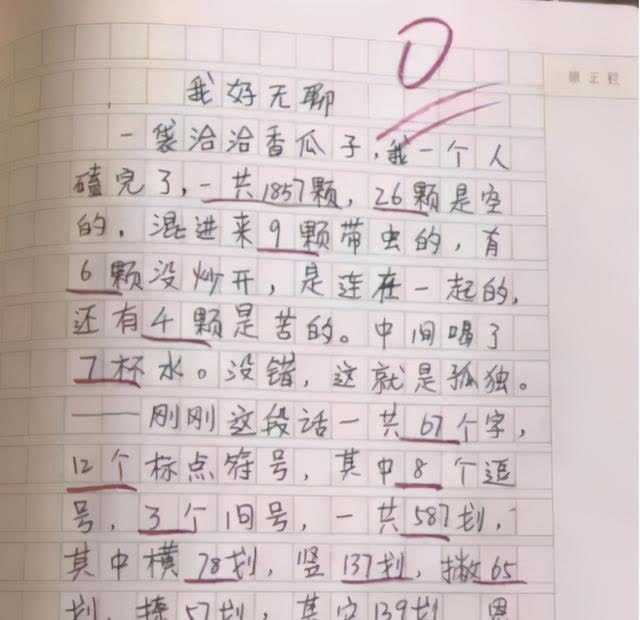 0
我好无聊
一袋洽洽香瓜子,我一个人
嗑完了,一共1857颗,26颗是空
的,混进来9颗带虫的,有
6颗没炒开,是连在一起的,
还有4颗是苦的。中间喝了
7杯水。没错,这就是孤独。
——刚刚这段话一共67个字,
12个标点符号,其中8个逗
号,3个问号,一共587划,
其中横78划,竖137划,撇65
划,捺57划,其它139划